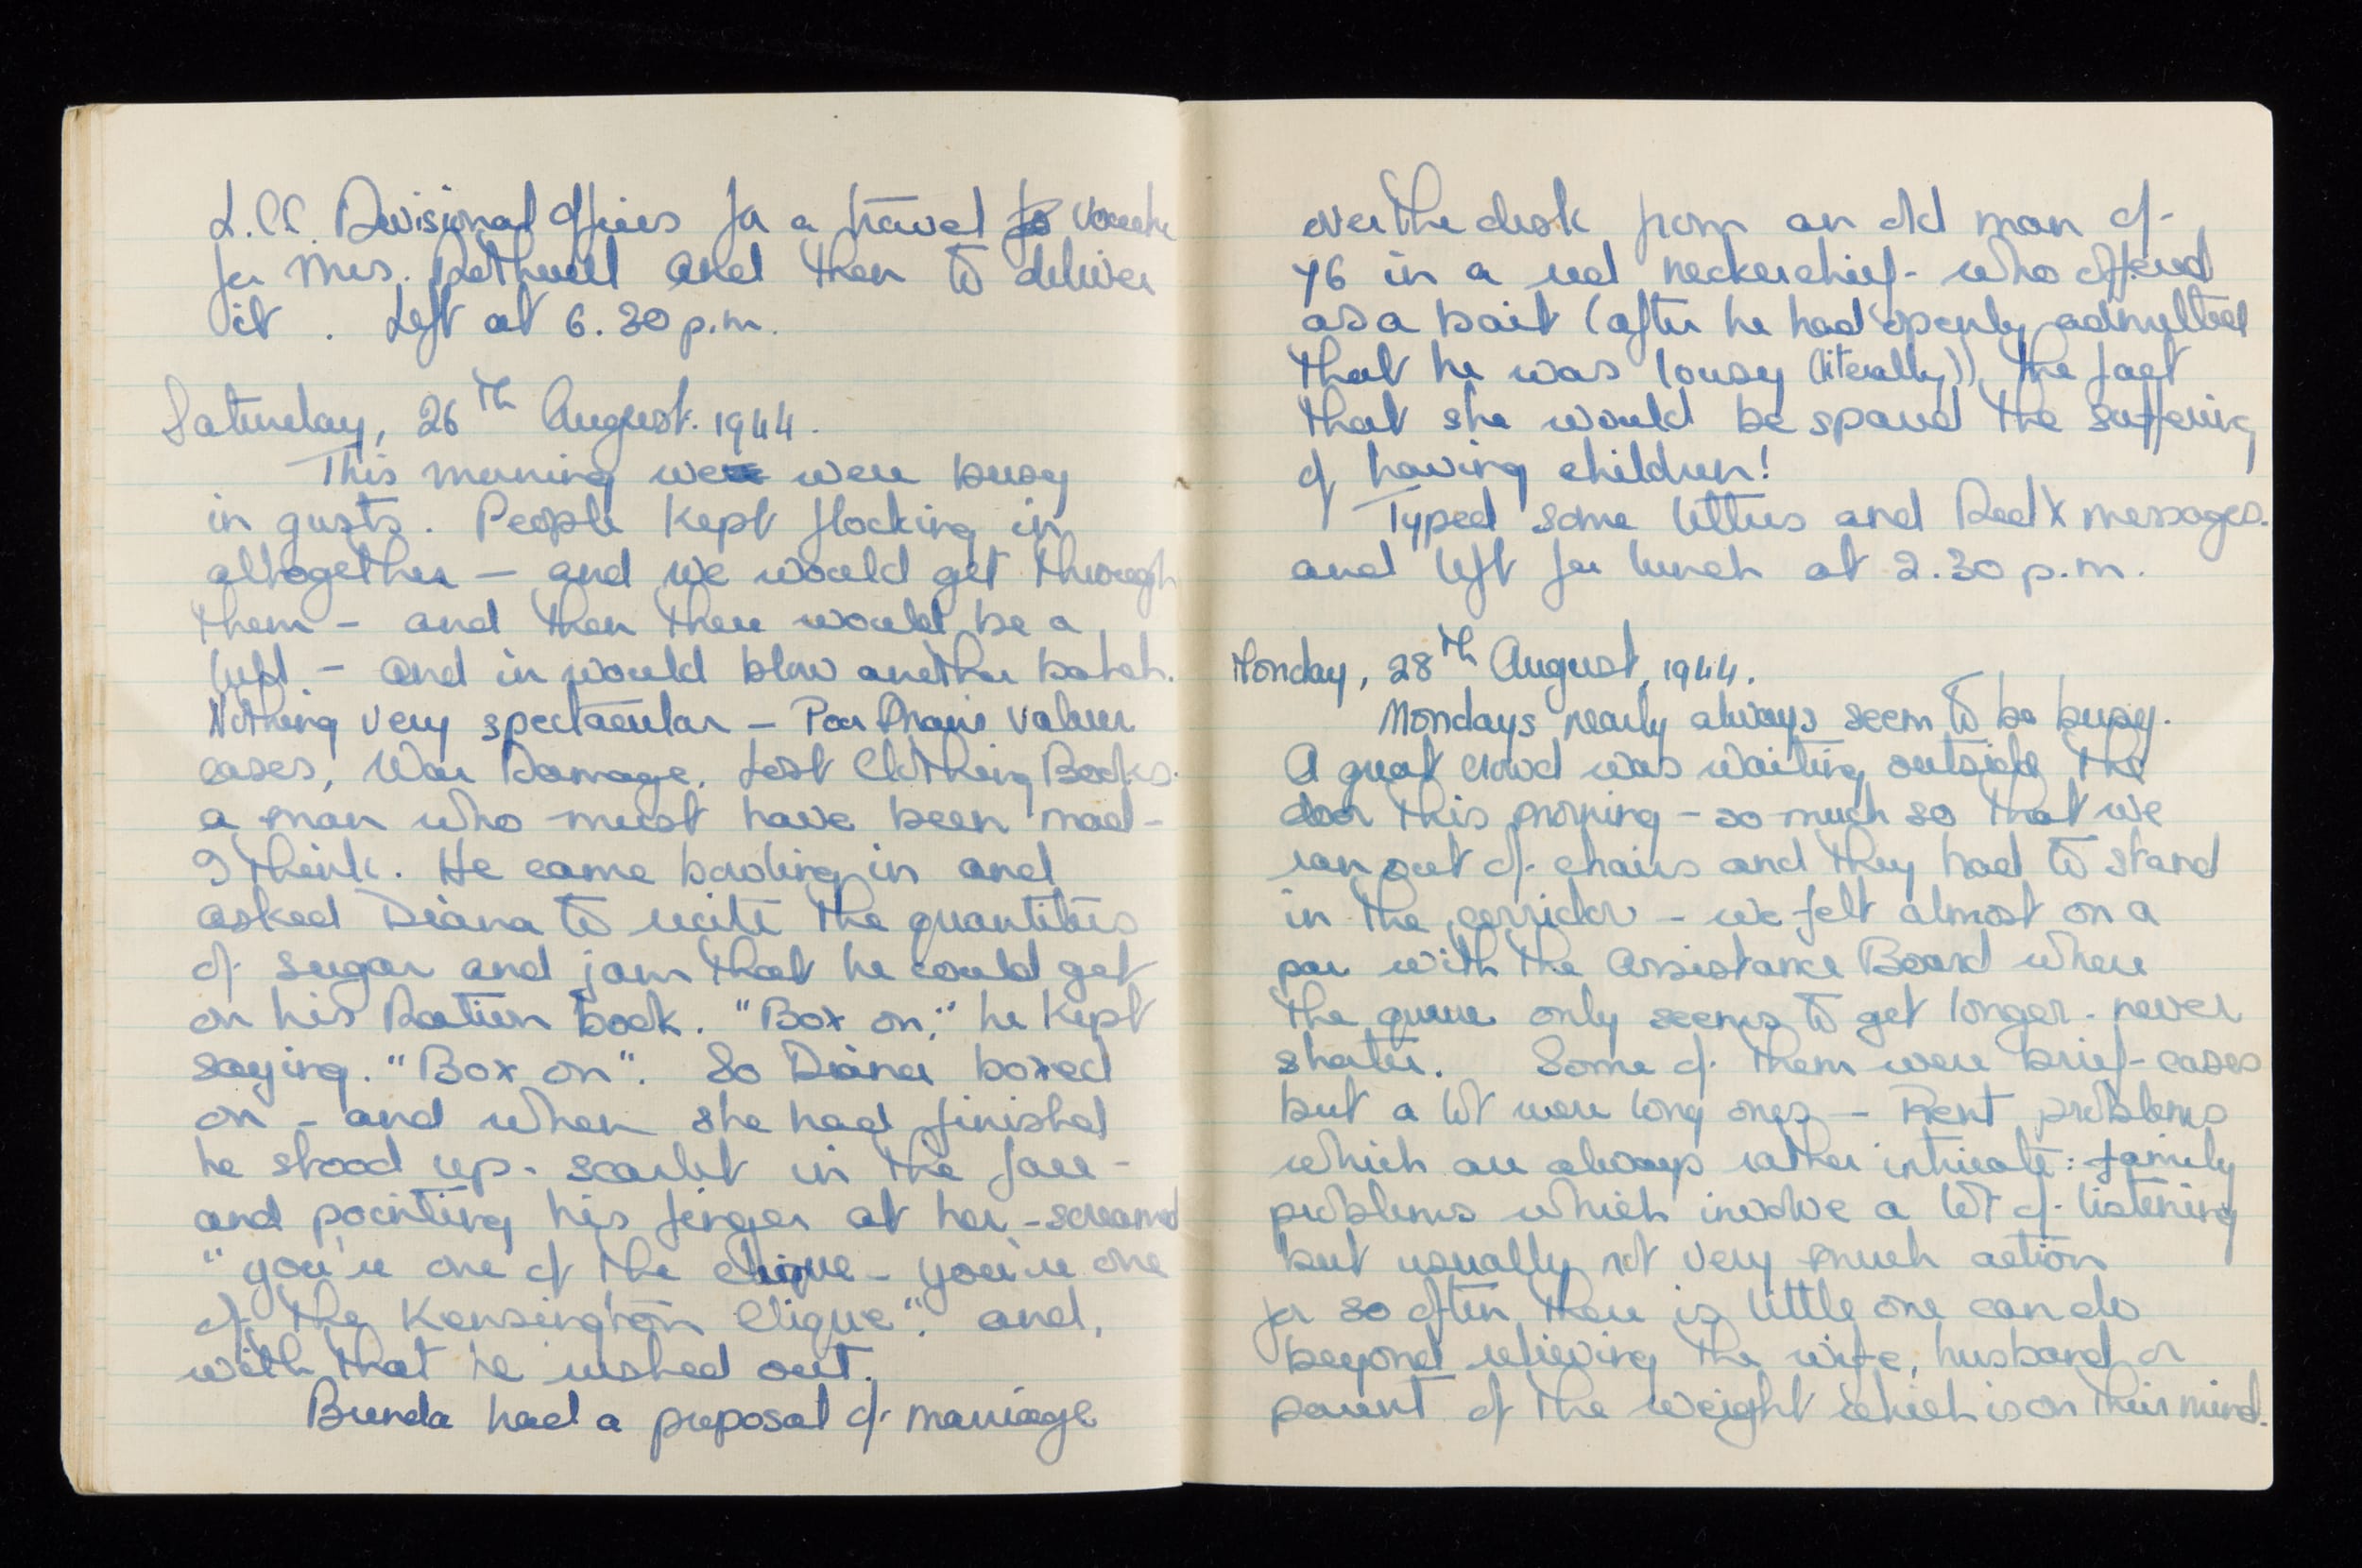 L.C.C. Divisional Offices for a travel voucher
for Mrs. Rothwell and then to deliver
it. Left at 6.30 p.m.
Saturday, 26th August. 1944.
This morning we were busy
in gusts. People kept flocking in
altogether — and we would get through
them – and then there would be a
lull – and in would blow another batch.
Nothing very spectacular – Poor Man's Valuer
cases, War Damage, Lost Clothing Books.
a man who must have been mad –
I think. He came barking in and
asked Diana to recite the quantities
of sugar and jam that he could get
on his Ration book. "Box on," he kept
saying. "Box on". So Diana boxed
on – and when she had finished
he stood up – scarlet in the face –
and pointing his finger at her – screamed
"you're one of the clique – you're one
of the Kensington Clique". and,
with that he rushed out.
Brenda had a proposal of marriage
over the desk from an old man of
76 in a red neckerchief – who offered
as a bait (after he had openly admitted
that he was lousy (literally)) the fact
that she would be spared the suffering
of having children!
Typed some letters and Red X messages.
and left for lunch at 2.30 p.m.
Monday, 28th August, 1944.
Mondays nearly always seem to be busy.
A great crowd was waiting outside the
door this morning – so much so that we
ran out of chairs and they had to stand
in the corridor – we felt almost on a
par with the Assistance Board where
the queue only seems to get longer – never
shorter. Some of them were brief cases
but a lot were long ones – Rent problems
which are always rather intricate: family
problems which involve a lot of listening
but usually not very much action
for so often there is little one can do
beyond relieving the wife, husband or
parent of the weight which is on their mind.